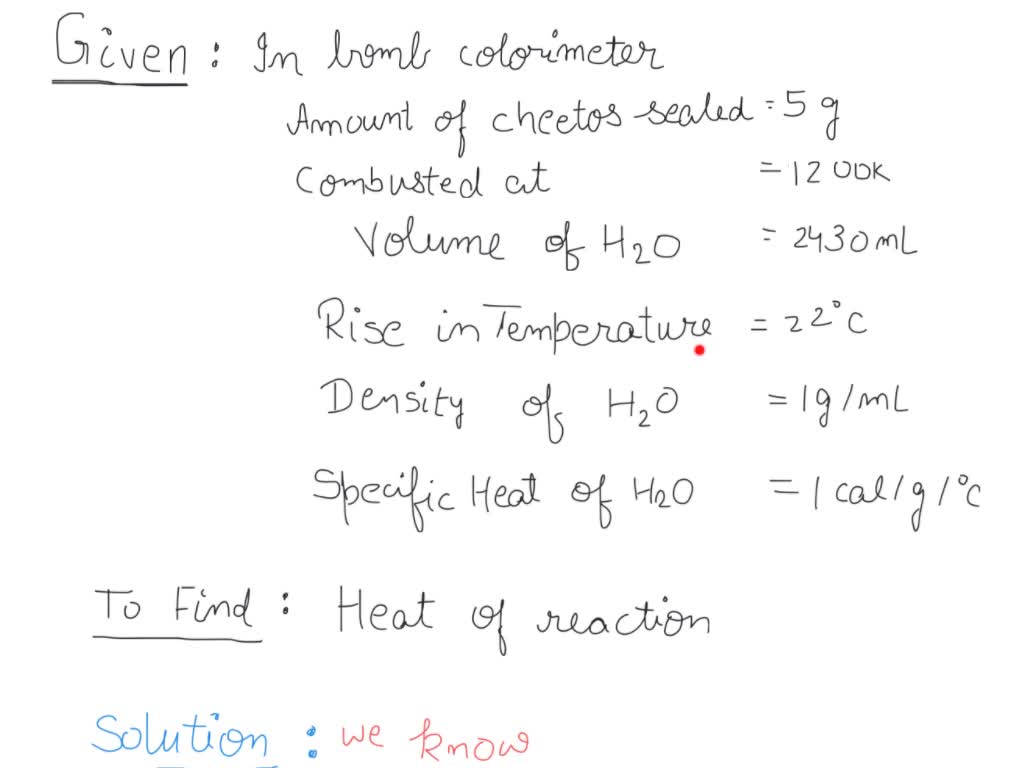 Given : In bomb colorimeter
Amount of cheetos sealed = 5 g
Combusted at = 1200K
Volume of H₂O = 2430 mL
Rise in Temperature = 22°C
Density of H₂O = 1g/mL
Specific Heat of H₂O = 1 cal/g/°C
To Find : Heat of reaction
Solution : we know